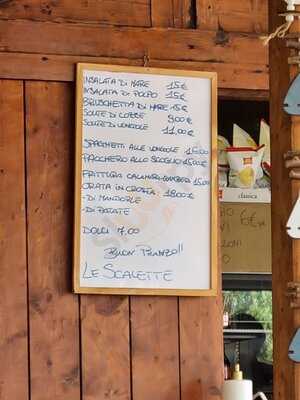 INSALATA DI MARE 15€
INSALATA DI POLPO 15€
BRUSCHETTA DI MARE 15€
SOUTE DI COZZE 9,00€
SOUTE DI VONGOLE 11,00€
SPAGHETTI ALLE VONGOLE 15,00€
PACCHERO ALLO SCOGLIO 15,00€
FRITTURA CALAMARI-GAMBERI 15,00
ORATA IN CROSTA 18,00€
-DI MANDORLE
-DI PATATE
DOLCI 7,00
BUON PRANZO!!
LE SCALETTE
classica
6€